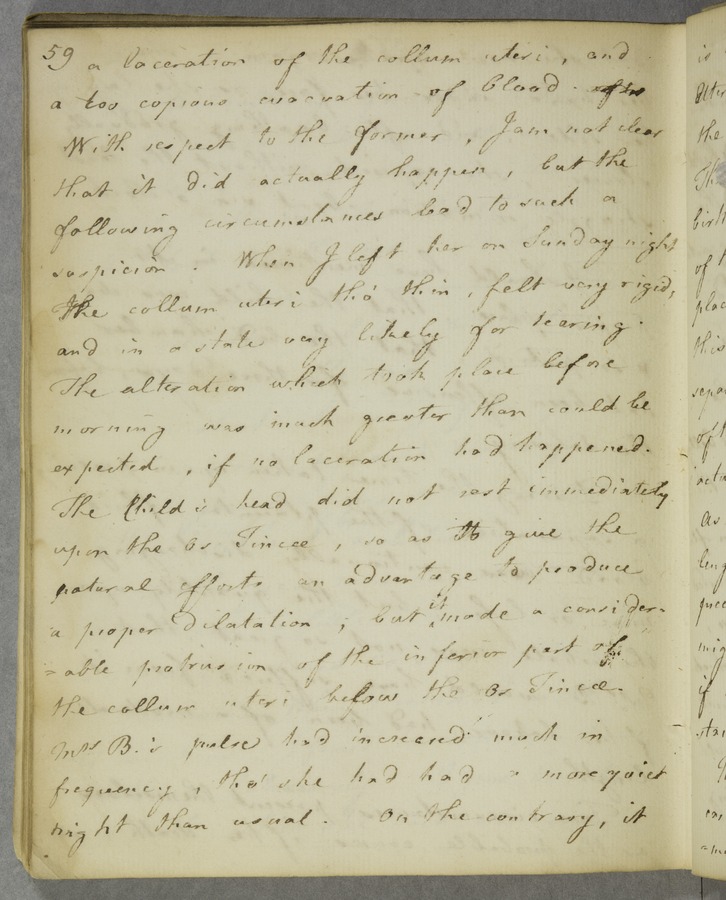 59 a laceration of the collum uteri, and
a too copious evacuation of blood.
With respect to the former, I am not clear
that it did actually happen, but the
following circumstances lead to such a
suspicion. When I left her on Sunday night
the collum uteri tho' thin, felt very rigid,
and in a state very likely for tearing.
The alteration which took place before
morning was much greater than could be
expected, if no laceration had happened.
The Child's head did not rest immediately
upon the Os Tincæ, so as to give the
natural efforts an advantage to produce
a proper dilatation; but it made a consider-
=able protrusion of the inferior part of
the collum uteri below the Os Tincæ.
Mrs B.'s pulse had increased much in
frequency, tho' she had had a more quiet
night than usual. On the contrary, it
is
the
Th
birth
of t
plac
this
sepa
of t
As
mig
if